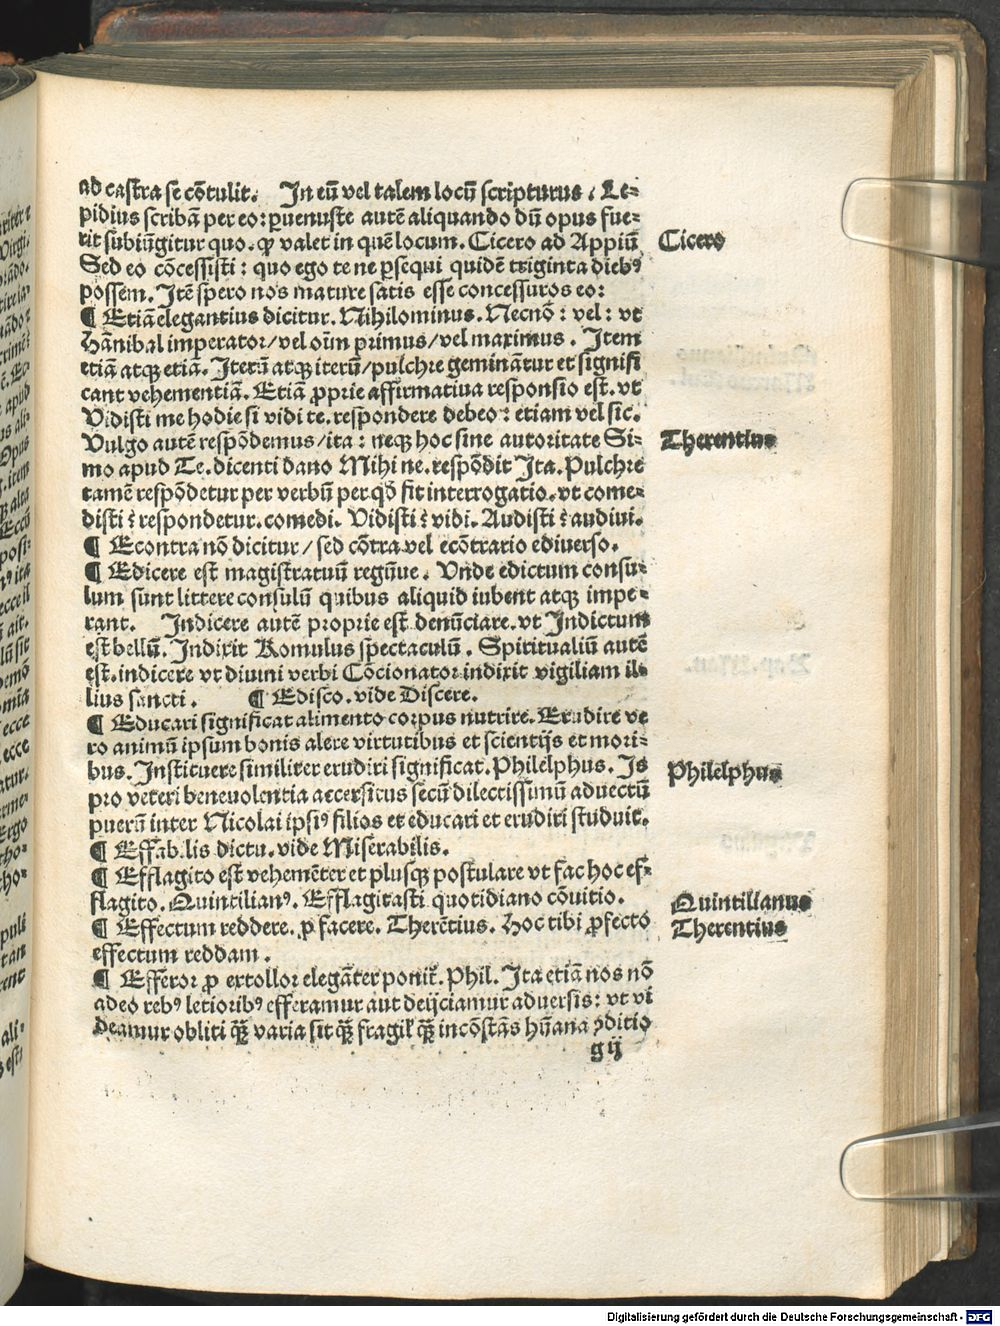 ad castra se cõtulit. In eũ vel talem locũ scripturus. Le⸗
pidius scribã per eo: ꝑuenuste autẽ aliquando dũ opus fue⸗
rit subiũgitur quo. ꝙ valet in quẽ locum. Cicero ad Appiũ
Cicero
Sed eo cõcessisti: quo ego te ne ꝑsequi quidẽ triginta diebꝰ
possem. Itẽ spero nos mature satis esse concessuros eo:
¶ Etiã elegantius dicitur. Nihilominus. Necnõ: vel: vt
Hãnibal imperator/vel oĩm primus/vel maximus. Item
etiã atqꝫ etiã. Iterũ atqꝫ iterũ/pulchre geminãtur et signifi
cant vehementiã. Etiã ꝓprie affirmatiua responsio est. vt
Vidisti me hodie si vidi te. respondere debeo: etiam vel sic.
Vulgo autẽ respõdemus/ita: neqꝫ hoc sine autoritate Si⸗
Therentius
mo apud Te. dicenti dano Mihi ne. respõdit Ita. Pulchre
tamẽ respõdetur per verbũ per qđ fit interrogatio. vt come⸗
disti ⁊ respondetur. comedi. Vidisti ⁊ vidi. Audisti ⁊ audiui.
¶ Econtra nõ dicitur/sed cõtra vel ecõtrario ediuerso.
¶ Edicere est magistratuũ regũue. Vnde edictum consu⸗
lum sunt littere consulũ quibus aliquid iubent atqꝫ impe⸗
rant. Indicere autẽ proprie est denũciare. vt Indictum
est bellũ. Indixit Romulus spectaculũ. Spiritualiũ autẽ
est. indicere vt diuini verbi Cõcionator indixit vigiliam il⸗
lius sancti. ¶ Edisco. vide Discere.
¶ Educari significat alimento corpus nutrire. Erudire ve
ro animũ ipsum bonis alere virtutibus et scientijs et mori⸗
bus. Instituere similiter erudiri significat. Philelphus. Is
Philelphus
pro veteri beneuolentia accersitus secũ dilectissimũ aduectũ
puerũ inter Nicolai ipsiꝰ filios et educari et erudiri studuit.
¶ Effabilis dictu. vide Miserabilis.
¶ Efflagito est vehemẽter et plusqꝫ postulare vt fac hoc ef⸗
flagito. Quintilianꝰ. Efflagitasti quotidiano cõuitio.
Quintilianus
¶ Effectum reddere. ꝓ facere. Therẽtius. Hoc tibi ꝓfecto
Therentius
effectum reddam.
¶ Efferor ꝓ extollor elegãter ponit᷑. Phil. Ita etiã nos nõ
adeo rebꝰ letioribꝰ efferamur aut deijciamur aduersis: vt vi
deamur obliti qꝫ̃ varia sit qꝫ̃ fragil᷑ qꝫ̃ incõstãs hũana ꝯditio
g ij
Digitalisierung gefördert durch die Deutsche Forschungsgemeinschaft - DFG